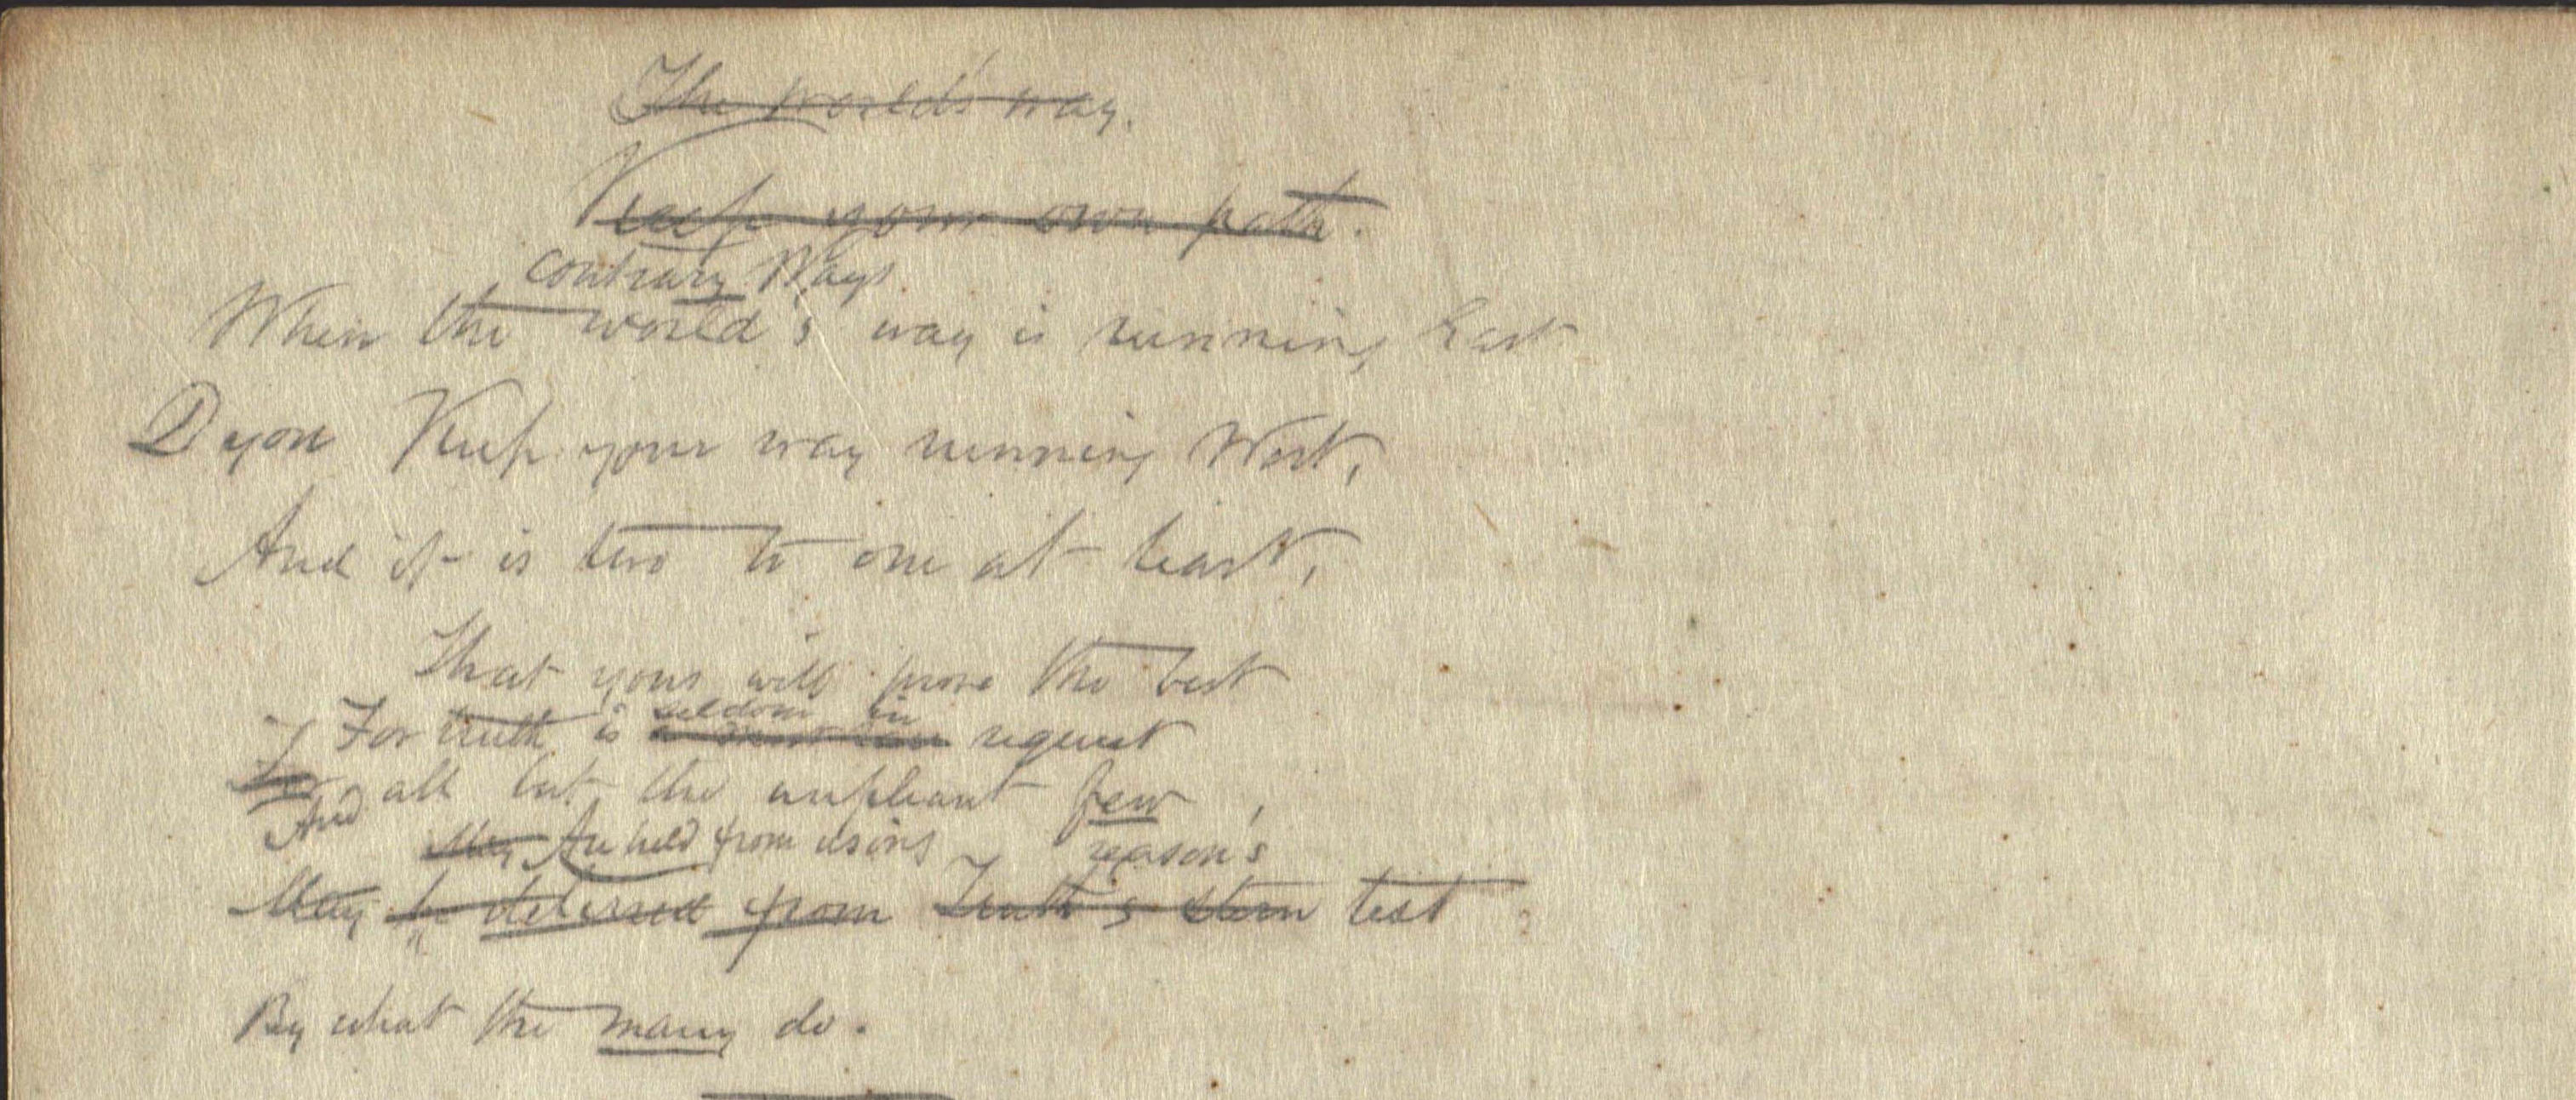 The world's way.
Keep your own path.
Contrary Ways.
When the world's way is running East
D you Keep your way running West,
And it is two to one at least,
That yours will prove the best
seldom in
For truth is request
For
And all but the unpliant few,
May Are held from using reason's
May be deterred from Truth's stern test
By what the many do.